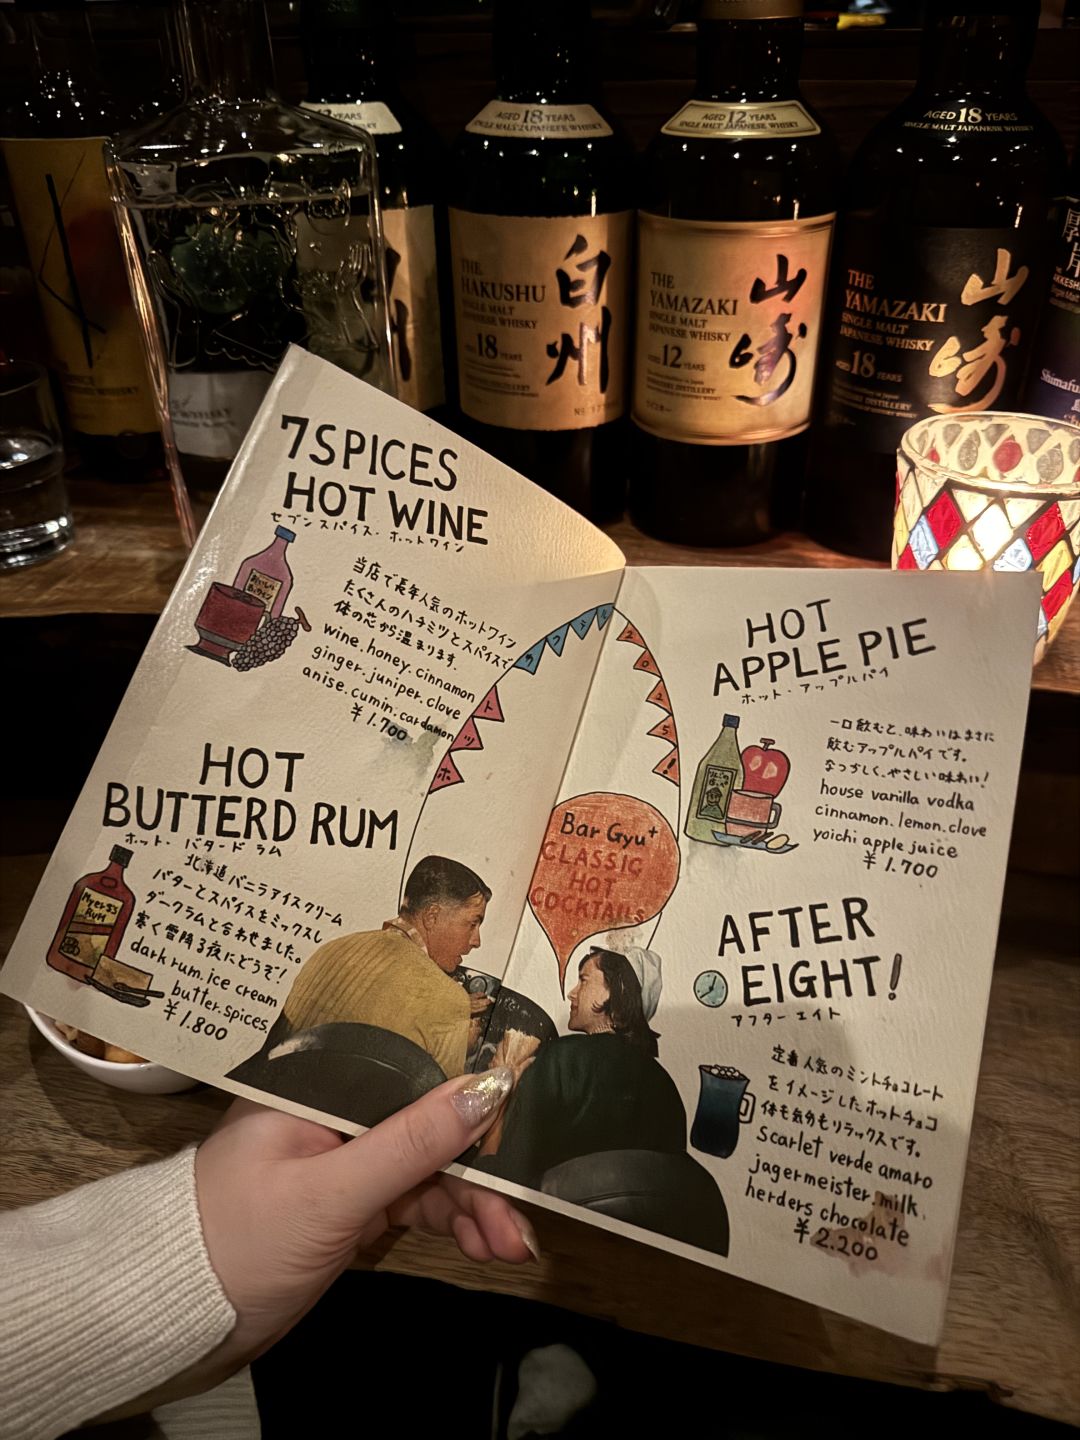 AGED 18 YEARS
SINGLE MALT JAPANESE WHISKY
AGED 12 YEARS
SINGLE MALT JAPANESE WHISKY
AGED 18 YEARS
SINGLE MALT JAPANESE WHISKY
州
THE
HAKUSHU
SINGLE MALT
JAPANESE WHISKY
18 YEARS
白州
THE
YAMAZAKI
SINGLE MALT
JAPANESE WHISKY
AGED 12 YEARS
山崎
THE
YAMAZAKI
SINGLE MALT
JAPANESE WHISKY
AGED 18 YEARS
山崎
7SPICES
HOT WINE
セブンスパイス・ホットワイン
当店で長年人気のホットワイン
たくさんのハチミツとスパイスで
体の芯から温まります.
wine.honey.cinnamon
ginger.juniper.clove
anise.cumin.cardamon
¥1.700
HOT
BUTTERD RUM
ホット・バタードラム
Myers's
RUM
北海道バニラアイスクリーム
バターとスパイスをミックスし
ダークラムと合わせました。
寒く雪降る夜にどうぞ!
dark rum.ice cream
butter.spices.
¥1.800
ホット
2025!
Bar Gyu+
CLASSIC
HOT
COCKTAILS
HOT
APPLE PIE
ホット・アップルパイ
一口飲むと、味わいはまさに
飲むアップルパイです。
なつかしく、やさしい味わい!
house vanilla vodka
cinnamon.lemon.clove
yoichi apple juice
¥1.700
AFTER
EIGHT!
アフターエイト
定番人気のミントチョコレート
をイメージしたホットチョコ
体も気分もリラックスです。
Scarlet verde amaro
jagermeister.milk.
herders chocolate
¥2.200